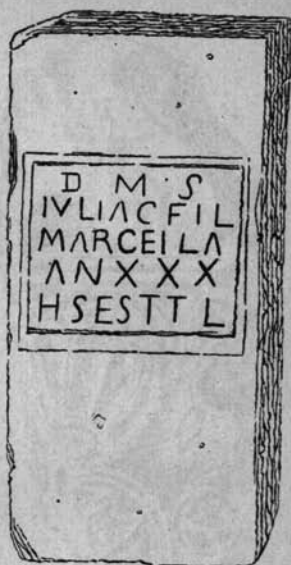 D M S
IVLIA C FIL
MARCEILA
AN XXX
H S E S T T L